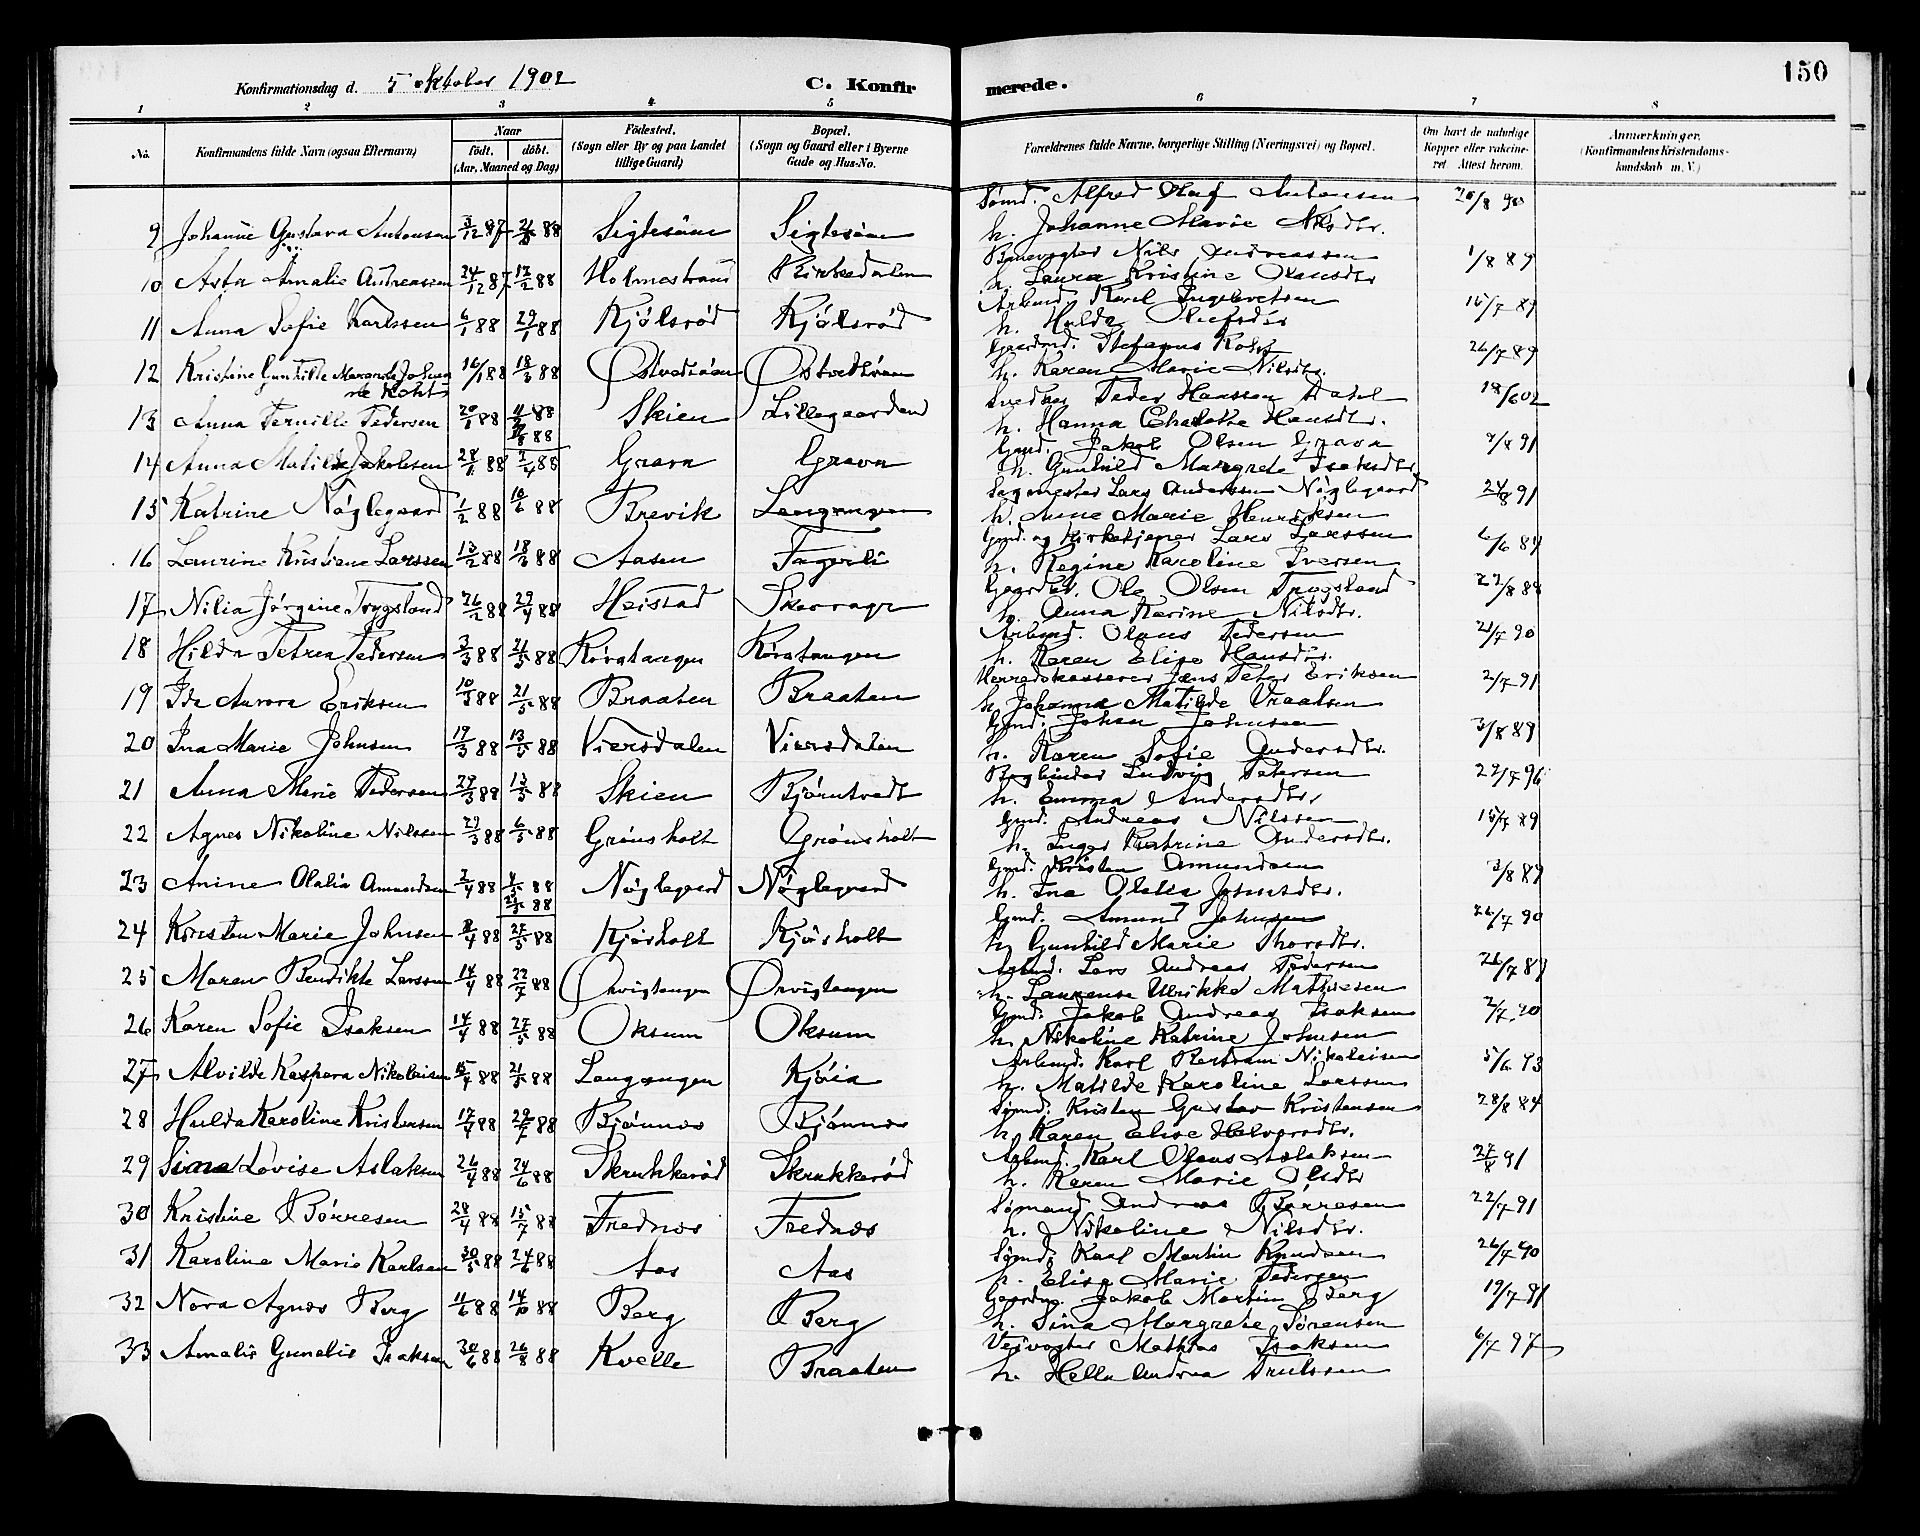 150
Konfirmationsdag d. 5 oktober 1902
C. Konfirmerede.
1 2 3 4 5 6 7 8
No. Konfirmandens fulde Navn (ogsaa Efternavn) Naar født, døbt. (Aar, Maaned og Dag) Fødested. (Sogn eller By og paa Landet tillige Gaard) Bopæl. (Sogn og Gaard eller i Byerne Gade og Hus-No. Forældrenes fulde Navne, borgerlige Stilling (Næringsvei) og Bopæl. Om havt de naturlige Kopper eller vakcineret Attest herom. Anmærkninger. (Konfirmandens Kristendomskundskab m. V.)
Sømd. Alfred Olaf Antonsen
9 Johanne Gustava Antonsen 3/12 87 88 Siglesøen Siglesøen h. Johanne Marie Nilsdtr.
Banevogter Nils Andreassen 1/8 89
10 Asta Amalie Andreassen 24/12 87 12/2 88 Holmestrand Birkedalen h. Laura Kristine Olausdtr
Arbmd. Karl Ingebretsen
11 Anna Sofie Karlssen 6/1 88 29/1 88 Kjølsrød Kjølsrød h. Hulda
Gaardmd. Stefanus Koht 26/7 89
12 Kristine Gunhilde Marande Johanne Koht 16/1 88 18/3 88 Østvedtøen Østvedtøen h. Karen Marie Nilsdtr.
Peder Hanssen 18/6 02
13 Anna Pernille Pedersen 20/1 88 88 88 Skien Lillegaarden h. Hanna Charlotte Hansdtr.
Gmd. Jakob Olsen Grava 91
14 Anna Matilde Jakobsen 28/1 88 2/4 88 Grava Grava h. Gunhild Margrete Isaksdtr
Sagmester Lars Anderssen Nøglegaard 24/8 91
15 Katrine Nøglegaard 1/2 88 10/6 88 Brevik Langangen h. Anne Marie Henriksen
Gmd. og Kirketjener Lars Larssen
16 Laurine Kristiane Larssen 13/2 88 18/3 88 Aasen Fagerli h. Regine Karoline Iversen
Gaardbr. Ole Olsen Trogsland
17 Nilia Jørgine Trygsland 26/2 88 29/4 88 Heistad h. Anna Karine Nilsdtr.
Arbmd. Olaus Pedersen 21/7 90
18 Hilda Petrea Pedersen 3/3 88 21/5 88 Kørstangen Kørstangen h. Karen Elise Hansdtr.
Herredskasserer Jens Peter Eriksen 2/7 91
19 Ida Aurora Eriksen 10/3 88 21/5 88 Braaten Braaten h. Johanna Matilde Vraalsen
Gmd. Johan Johnsen 3/8 89
20 Ina Marie Johnsen 19/3 88 13/5 88 Viersdalen Viersdalen h. Karen Sofie Andersdtr.
Bogbinder Ludvig Petersen 22/7 96
21 Anna Marie Pedersen 29/3 88 13/5 88 Skien Bjørntvedt h. Emma Andersdtr.
Gmd. Andreas Nilssen 15/7 89
22 Agnes Nikoline Nilssen 29/3 88 6/5 88 Grønsholt Grønsholt h. Inger Katrine Andersdtr.
Gmd. Kristen Amundsen 3/8 89
23 Anine Olalia Amundsen 2/4 88 88 88 Nøglegaard Nøglegaard h. Ina Olalia Johnsdtr.
Gmd. Amund Johnsen 26/7 90
24 Kirsten Marie Johnsen 4 88 27/5 88 Kjøsholt Kjøsholt h. Gunhild Marie Thorsdtr.
Arbmd. Lars Andreas Pedersen
25 Maren Bendikte Larssen 14/4 88 22/7 88 Ørvigtangen Ørvigtangen h. Laurense Ulrikke Mathiesen
Gmd. Jakob Andreas Isaksen 2/7 90
26 Karen Sofie Isaksen 14/4 88 27/5 88 Oksum Oksum h. Nikoline Katrine Johnsen
Arbmd. Karl Bertram Nikolaisen
27 Alvilde Kaspara Nikolaisen 15/4 88 21/5 88 Langangen Kjøia h. Matilde Karoline Larssen
Sømd. Kristen Gustav Kristensen
28 Hulda Karoline Kristensen 17/4 88 29/7 88 Bjønnes Bjønnes h. Karen Elise Halvorsdtr.
Arbmd. Karl Olaus Aslaksen 27/8 91
29 Sina Lovise Aslaksen 26/4 88 24/6 88 Skrukkerød Skrukkerød h. Karen Marie Olsdtr
Sømand Andreas Børresen 22/7 91
30 Kristine Børresen 28/4 88 15/7 88 Frednes Frednes h. Nikoline Nilsdtr.
Sømd. Karl Martin Knudsen 26/7 90
31 Karoline Marie Karlsen 30/5 88 24/6 88 Aas Aas h. Elise Marie Pedersen
Gaardm. Jakob Martin Berg 19/7 91
32 Nora Agnes Berg 11/6 88 14/10 88 Berg Berg h. Sina Margrete Sørensen
Veivogter Mathias Isaksen 6/7 97
33 Amalie Gunelie Isaksen 30/6 88 26/8 88 Kvelle Braaten h. Helle Andrea Trulssen